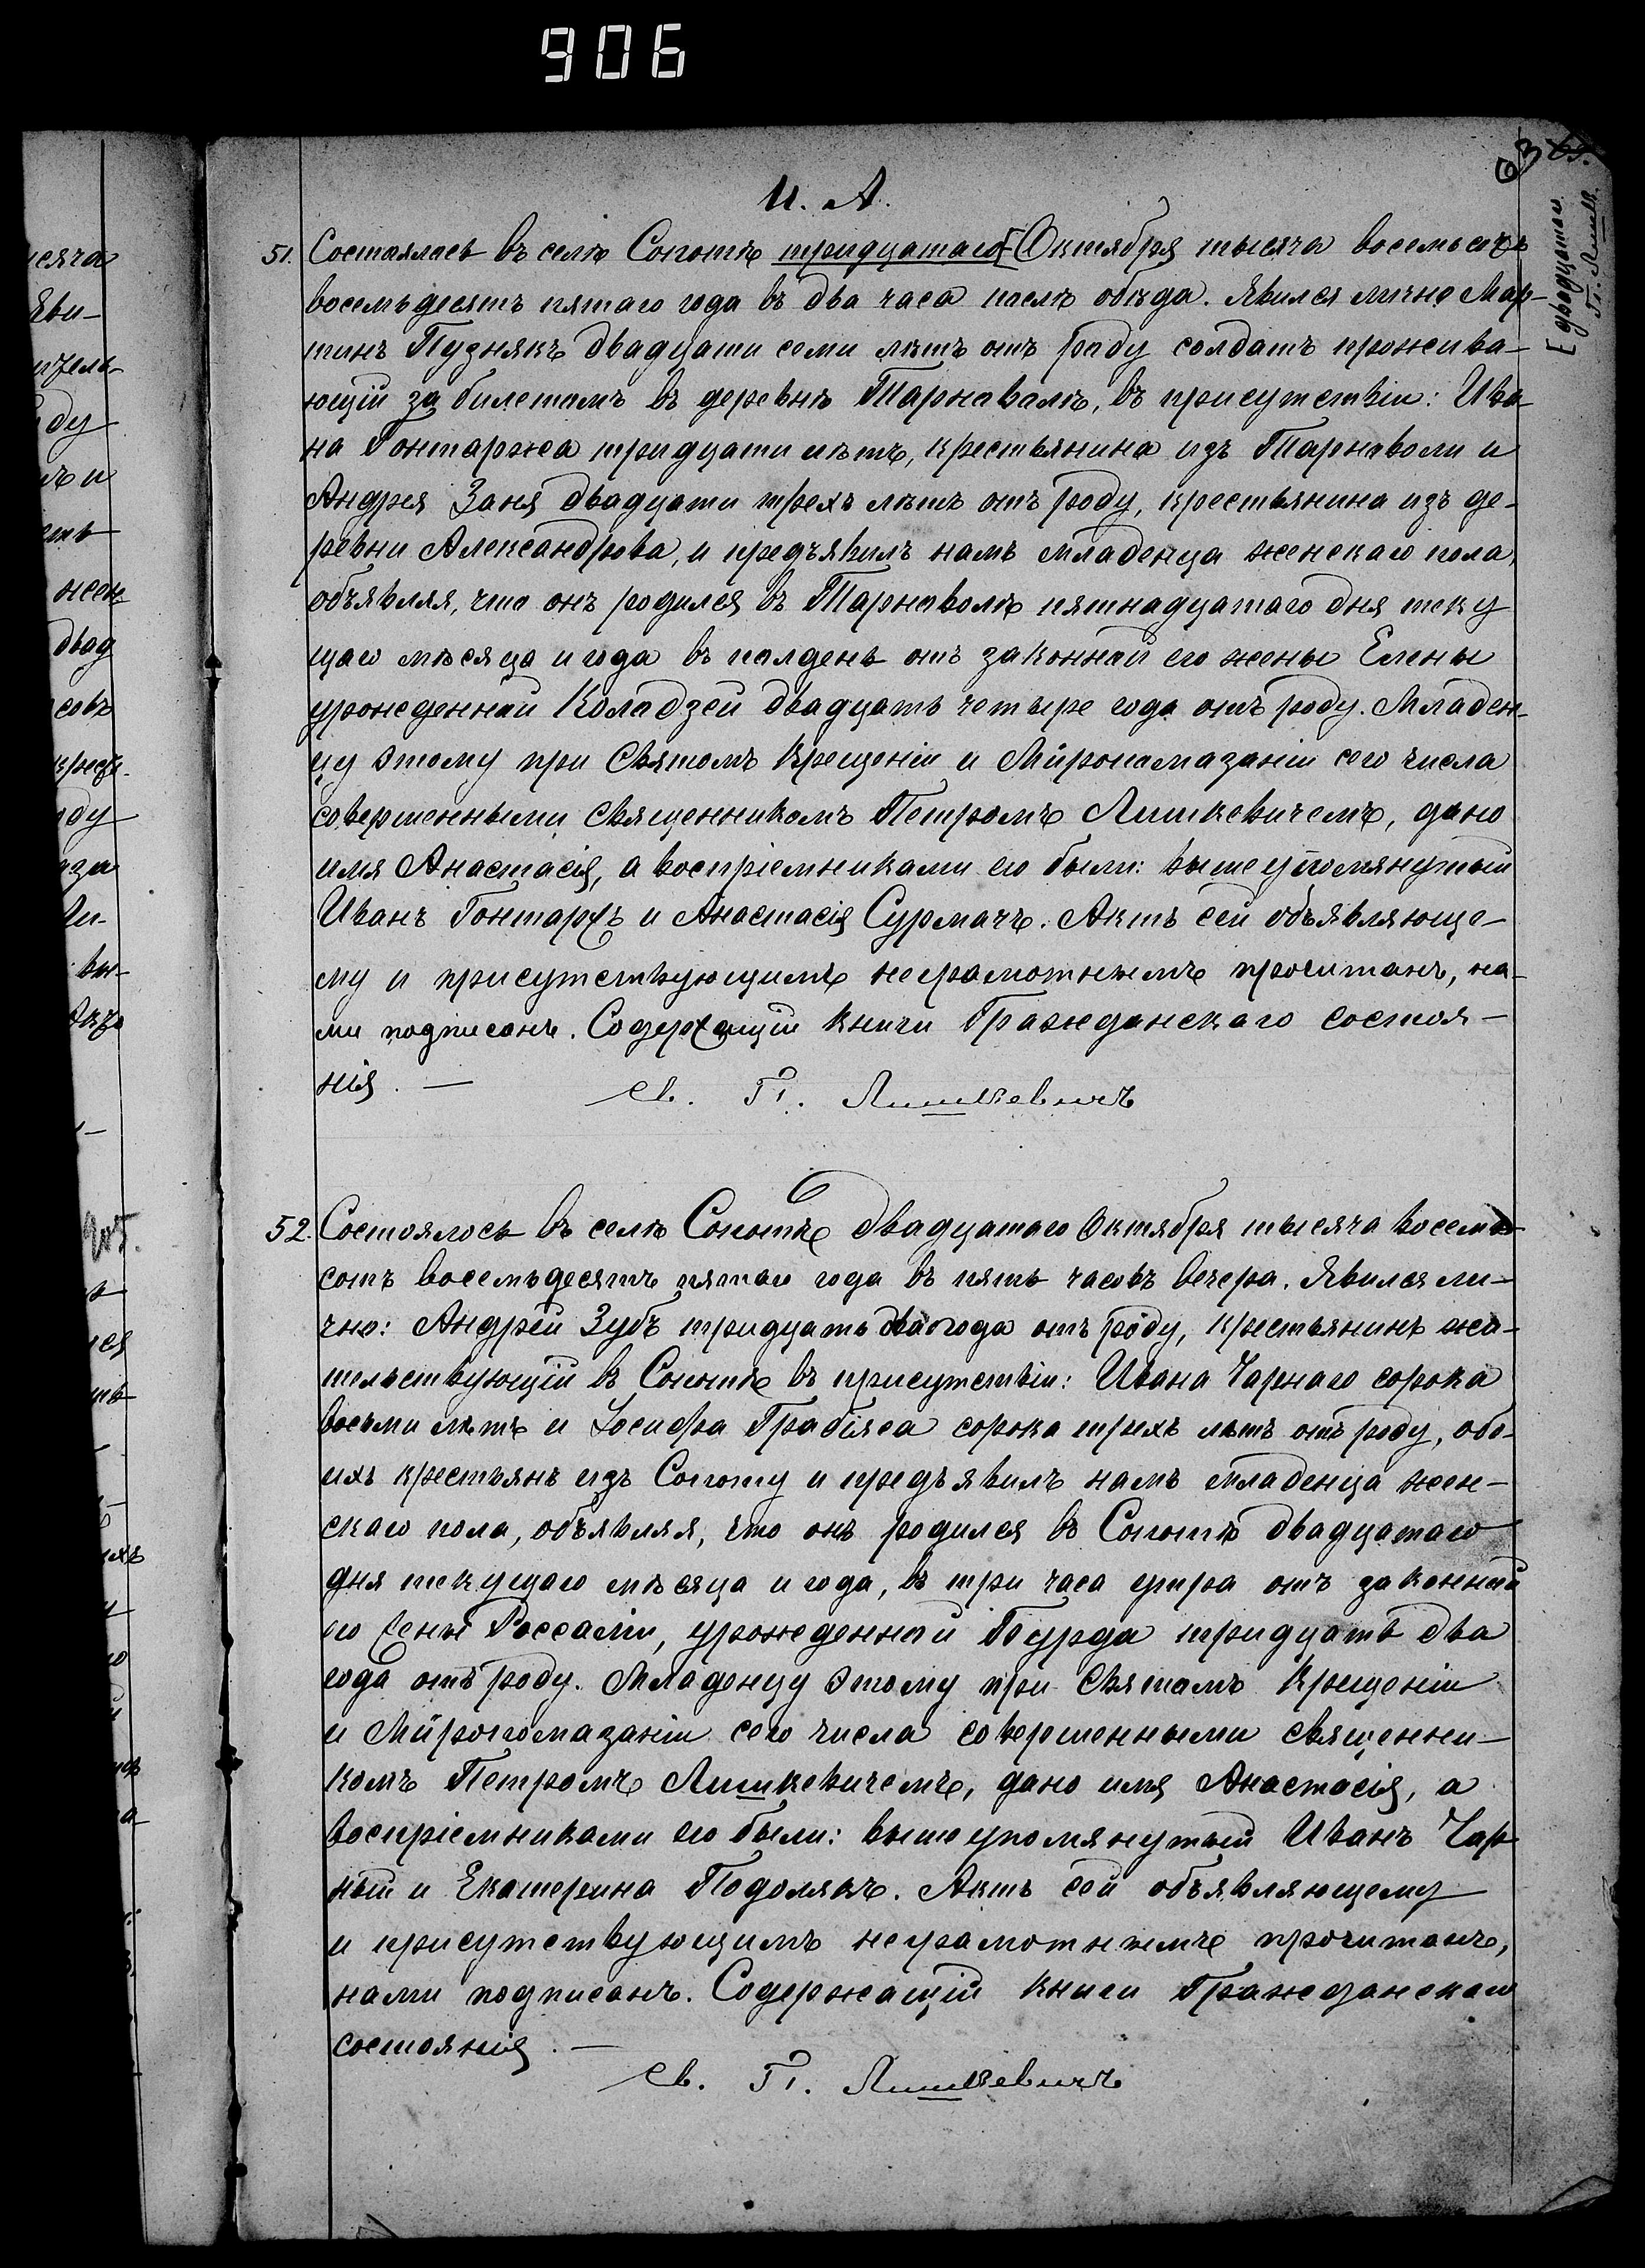 906
63
И. А.
[двадцатаго
П. Лишк.
51. Состоялось въ селѣ Сопотѣ тридцатаго[Октября тысяча восемьсотъ
восемьдесятъ пятаго года въ два часа послѣ обѣда. Явился лично Мар-
тинъ Пузнякъ двадцати семи лѣтъ отъ роду солдатъ прожива-
ющій за билетомъ въ деревнѣ Тарнаволѣ, въ присутствіи: Ива-
на Гонтаржа тридцати лѣтъ, крестьянина изъ Тарнаволи и
Андрея Заня двадцати трехъ лѣтъ отъ роду, крестьянина изъ де-
ревни Александрова, и предъявилъ намъ младенца женскаго пола,
объявляя, что онъ родился въ Тарнаволѣ пятнадцатаго дня теку
щаго мѣсяца и года въ полдень отъ законной его жены Елены
урожденной Коладзей двадцать четыре года отъ роду. Младен-
цу этому при Святомъ Крещеніи и Мѵропомазаніи сего числа
совершенными Священникомъ Петромъ Лишкевичемъ, дано
имя Анастасія, а воспріемниками его были: вышеупомянутый
Иванъ Гонтаржъ и Анастасія Сурмачъ. Актъ сей объявляюще-
му и присутствующимъ неграмотнымъ прочитанъ, на-
ми подписанъ. Содержащій книги Гражданскаго состоя-
нія. —
Св. П. Лишкевичъ
52. Состоялось въ селѣ Сопотѣ двадцатаго Октября тысяча восемь-
сотъ восемьдесятъ пятаго года въ пять часовъ вечера. Явился ли-
чно: Андрей Зубъ тридцать два года отъ роду, крестьянинъ жи-
тельствующій въ Сопотѣ въ присутствіи: Ивана Чарнаго сорока
восьми лѣтъ и Іосифа Грабіяса сорока трехъ лѣтъ отъ роду, обо-
ихъ крестьянъ изъ Сопоту и предъявилъ намъ младенца жен-
скаго пола, объявляя, что онъ родился въ Сопотѣ двадцатаго
дня текущаго мѣсяца и года, въ три часа утра отъ законной
его жены Россаліи, урожденной Бурда тридцать два
года отъ роду. Младенцу этому при Святомъ Крещеніи
и Мѵропомазаніи сего числа совершенными священни-
комъ Петромъ Лишкевичемъ, дано имя Анастасія, а
воспріемниками его были: вышеупомянутый Иванъ Чар-
ный и Екатерина Подолякъ. Актъ сей объявляющему
и присутствующимъ неграмотнымъ прочитанъ,
нами подписанъ. Содержащій книги Гражданскаго
состоянія. —
Св. П. Лишкевичъ